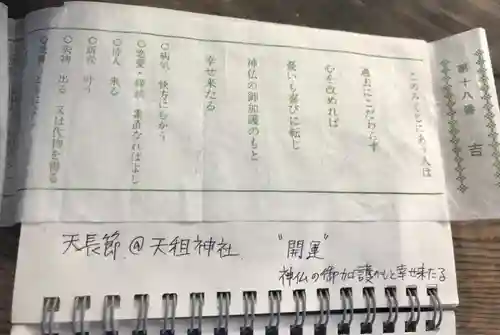 第十八番
吉
このみくじにあう人は
過去にこだわらず
心を改めれば
憂いも喜びに転じ
神仏の御加護のもと
幸せ来たる
○病気 快方にむかう
○恋愛・縁談 素直なればよし
○待人 来る
○訴訟 叶う
○失物 出る 又は代物を得る
天長節@天祖神社
"開運"
神仏の御加護のもと幸せ来たる